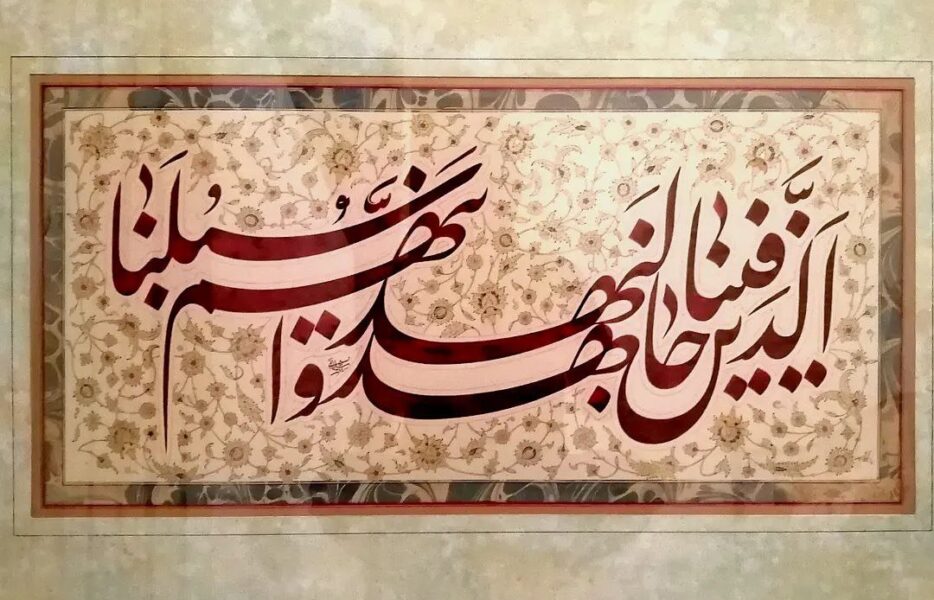 اَلَّذينَ جاهَدوا فينا لَنَهدِيَنَّهُم سُبُلَنا